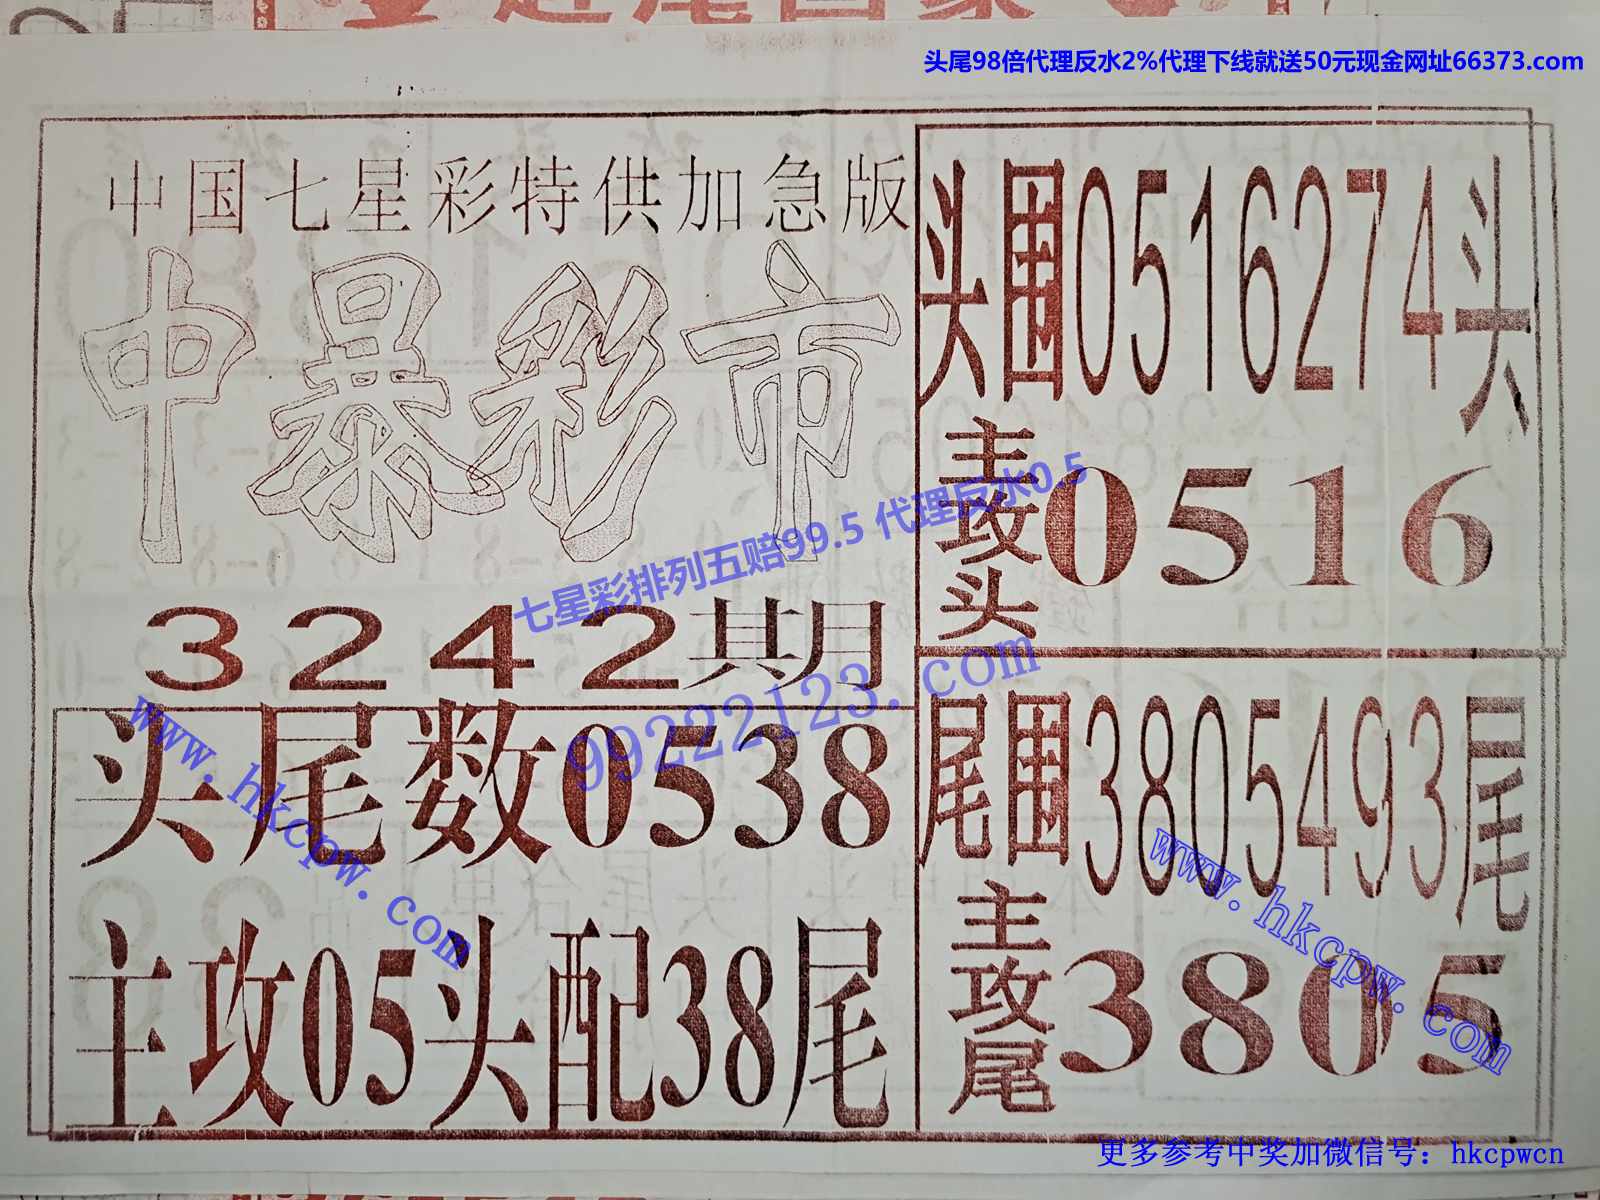 头尾98倍代理反水2%代理下线就送50元现金网址66373.com
中国七星彩特供加急版
中暴彩市
3242期
头尾数0538
主攻05头配38尾
头围0516274头
主攻头0516
尾围3805493尾
主攻尾3805
七星彩排列五赔99.5 代理反水0.5
99222123.com
www.hkcpw.com
www.hkcpw.com
更多参考中奖加微信号：hkcpwcn